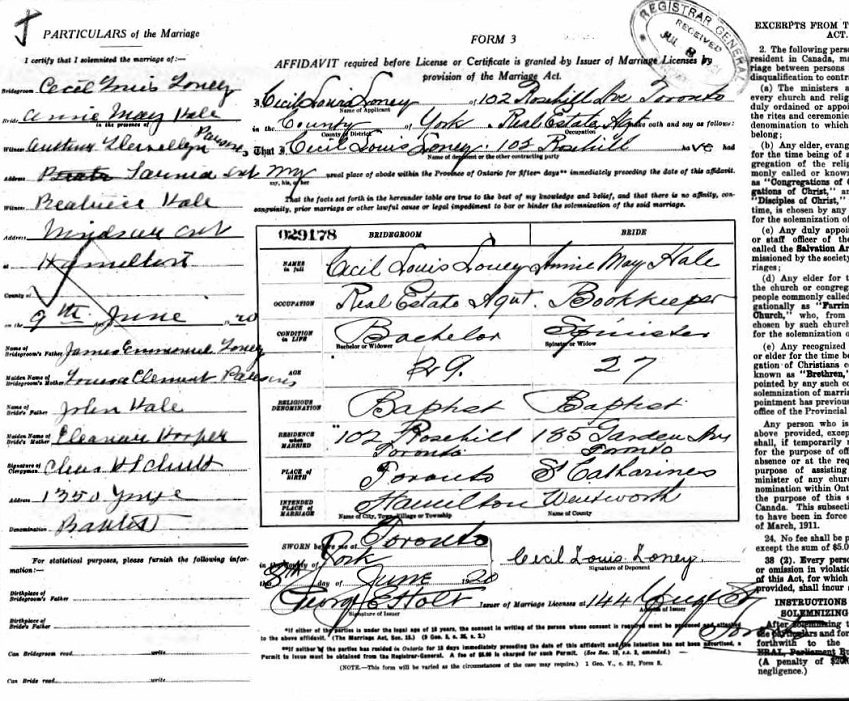 PARTICULARS of the Marriage
I certify that I solemnized the marriage of:—
Bridegroom Cecil Louis Loney
Bride Annie May Hale
in the presence of
Witness Llewellyn Parsons,
Address Sarnia Ont
Witness Beatrice Hale
Address Lindsay Ont
at Hamilton
County of
on the 9th June 1920
Name of Bridegroom's Father James Emmanuel Loney
Maiden Name of Bridegroom's Mother Louisa Clement Parsons
Name of Bride's Father John Hale
Maiden Name of Bride's Mother Eleanor Hooper
Signature of Clergyman
Address 1350
Denomination Baptist
For statistical purposes, please furnish the following information:—
Birthplace of Bridegroom's Father
Birthplace of Bride's Father
Can Bridegroom read write
Can Bride read write
REGISTRAR GENERAL
RECEIVED
JUL 8
FORM 3
AFFIDAVIT required before License or Certificate is granted by Issuer of Marriage Licenses by
provision of the Marriage Act.
I, Cecil Louis Loney of 102 Rosehill Ave Toronto
Name of Applicant
in the County of York Real Estate Agt make oath and say as follows:
County or District Occupation
That I, Cecil Louis Loney 102 Rosehill have had
Name of deponent or the other contracting party
my usual place of abode within the Province of Ontario for fifteen days** immediately preceding the date of this affidavit.
my, his, or her
That the facts set forth in the hereunder table are true to the best of my knowledge and belief, and that there is no affinity, consanguinity, prior marriage or other lawful cause or legal impediment to bar or hinder the solemnization of the said marriage.
029178 BRIDEGROOM BRIDE
NAMES in full Cecil Louis Loney Annie May Hale
OCCUPATION Real Estate Agnt. Bookkeeper
CONDITION in LIFE Bachelor Spinster
Bachelor or Widower Spinster or Widow
AGE 29. 27
RELIGIOUS DENOMINATION Baptist Baptist
RESIDENCE when MARRIED 102 Rosehill Toronto 185 Garden Ave Toronto
PLACE OF BIRTH Toronto St Catharines
INTENDED PLACE OF MARRIAGE Hamilton Wentworth
Name of City, Town, Village or Township Name of County
SWORN before me at Toronto
in the County of York Cecil Louis Loney
Signature of Deponent
this 8th day of June 1920
George E Holt Issuer of Marriage Licenses at 144 Yonge St
Signature of Issuer Address of Issuer
*If either of the parties is under legal age of 18 years, the consent in writing of the person whose consent is required must be
to the above affidavit. (The Marriage Act, Sec. 15.)
**If neither of the parties has resided in Ontario for 15 days immediately preceding the date of this affidavit and the intention has not been advertised, a
Permit to issue must be obtained from the Registrar-General. A fee of $5.00 is charged for such Permit.
(NOTE.—This form will be varied as the circumstances of the case may require.) 1 Geo. V., c. 32, Form 3.
EXCERPTS FROM T
ACT.
2. The following perso
resident in Canada, ma
riage between persons
disqualification to contr
(a) The ministers a
every church and relig
duly ordained or appoin
the rites and ceremonie
denomination to which
belong;
(b) Any elder, evang
for the time being of a
gregation of the religi
monly called or known
as "Congregations of C
gations of Christ," a
"Disciples of Christ,"
time, is chosen by any
for the solemnization of
(c) Any duly appoi
or staff officer of the
called the Salvation Ar
missioned by the society
riages;
(d) Any elder for t
the church or congreg
people commonly called
gationally as "Farrin
Church," who, from
chosen by such church
for the solemnization o
(e) Any recognized
or elder for the time be
gation of Christians c
known as "Brethren,"
pointed by any such c
solemnization of marri
pointment has previous
office of the Provincial
Any person who is
above provided, excep
shall, if temporarily
for the purpose of offi
absence or at the requ
purpose of assisting
minister of any church
nomination within Onta
the purpose of this s
Canada. This subsecti
to have been in force
of March, 1911.
24. No fee shall be p
except the sum of $5.0
38 (2). Every perso
or omission in violatio
of this Act, for which
provided, shall incur a
INSTRUCTIONS
SOLEMNIZING
After solemnizing t
the particulars and for
forthwith to the
ERAL, Parliament Bu
(A penalty of $20
negligence.)